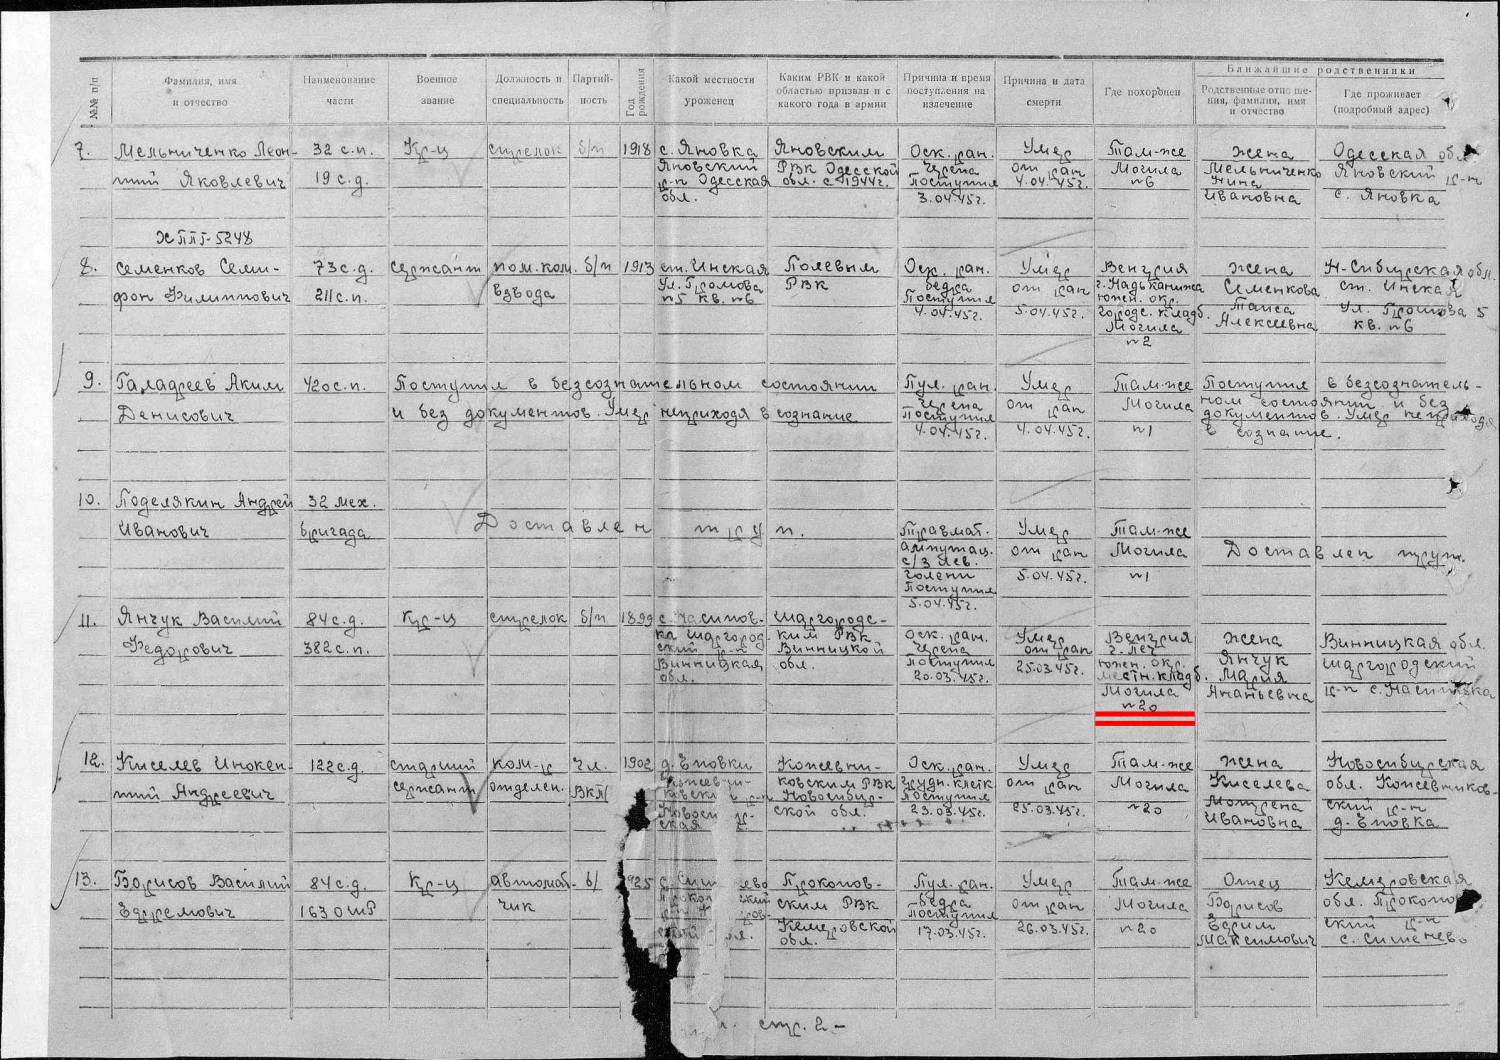 №№ п/п
Фамилия, имя и отчество
Наименование части
Военное звание
Должность и специальность
Партий-ность
Год рождения
Какой местности уроженец
Каким РВК и какой областью призван и с какого года в армии
Причина и время поступления на излечение
Причина и дата смерти
Где похоронен
Ближайшие родственники
Родственные отноше-ния, фамилия, имя и отчество
Где проживает (подробный адрес)
7. Мельниченко Леон-тий Яковлевич
32 с.п. 19 с.д.
Кр-ц
стрелок
б/п
1918
с. Яновка Яновский р-н Одесская обл.
Яновским РВК Одесской обл. с 1944г.
Оск. ран. черепа Поступил 3.04.45г.
Умер от ран 4.04.45г.
Там-же Могила №6
Жена Мельниченко Нина Ивановна
Одесская обл. Яновский р-н с. Яновка
ХППГ-5248
8. Семенков Сели-фон Филиппович
73 с.д. 211 с.п.
сержант
пом. ком. взвода
б/п
1913
ст. Инская Ул. Громова №5 кв. №6
Полевым РВК
Оск. ран. бедра Поступил 4.04.45г.
Умер от ран 5.04.45г.
Венгрия г. Надьканижа южн. окр. городс. кладб. Могила №2
Жена Семенкова Таиса Алексеевна
Н-Сибирская обл. ст. Инская Ул. Громова 5 кв. №6
9. Галадреев Аким Денисович
420 с.п.
Поступил в безсознательном состоянии
и без документов. Умер неприходя в сознание
Пул. ран. черепа Поступил 4.04.45г.
Умер от ран 4.04.45г.
Там-же Могила №1
Поступил в безсознатель-ном состоянии и без документов. Умер неприходя в сознание.
10. Поделякин Андрей Иванович
32 мех. бригада
Доставлен труп.
Травмат. ампутац. с/з лев. голени Поступил 5.04.45г.
Умер от ран 5.04.45г.
Там-же Могила №1
Доставлен труп.
11. Янчук Василий Федорович
84 с.д. 382 с.п.
Кр-ц
стрелок
б/п
1899
с. Насиков-ка Шаргород-ский р-н Винницкая обл.
Шаргородс-ким РВК Винницкой обл.
Оск. ран. черепа Поступил 20.03.45г.
Умер от ран 25.03.45г.
Венгрия г. Печ южн. окр. местн. кладб. Могила №20
Жена Янчук Мария Ананьевна
Винницкая обл. Шаргородский р-н с.
12. Киселев Инокен-тий Андреевич
122 с.д.
старший сержант
ком-р отделен.
Чл. ВКП(
1902
д. Еловки
Кожевни-ковским РВК Новосибир-ской обл.
Оск. ран. грудн. клетк. Поступил 23.03.45г.
Умер от ран 25.03.45г.
Там-же Могила №20
Жена Киселева Мотрена Ивановна
Новосибирская обл. Кожевников-ский р-н д. Еловка
13. Борисов Василий Ефремович
84 с.д. 163 ОИР
Кр-ц
автомат-чик
б/
925
Прокопов-ским РВК Кемеровской обл.
Пул. ран. бедра Поступил 17.03.45г.
Умер от ран 26.03.45г.
Там-же Могила №20
Отец Борисов Ефрим Максимович
Кемеровская обл. Прокопо ский р-н
стр. 2 –